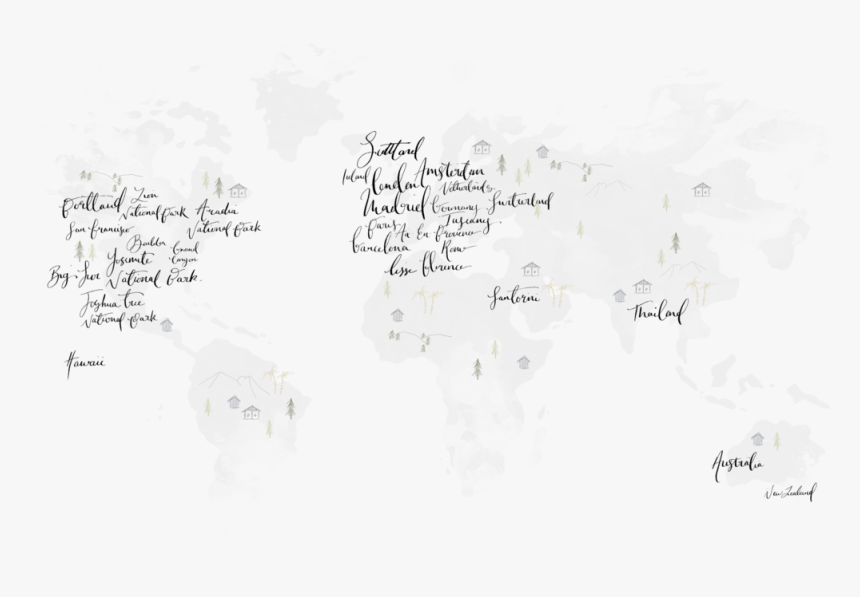 Portland
Zion
National Park
Acadia
National Park
San Francisco
Boulder
Grand
Canyon
Yosemite
National Park.
Big Sur
Joshua Tree
National Park
Hawaii
Scotland
Ireland
London
Amsterdam
Netherlands
Madrid
Germany
Switzerland
Paris
Tuscany
Aix En Provence
Barcelona
Rome
Lisse
Florence
Santorini
Thailand
Australia
New Zealand